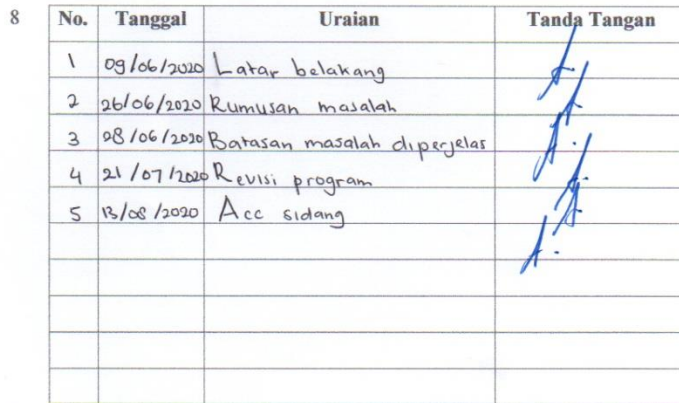 8
No. Tanggal Uraian Tanda Tangan
1 09/06/2020 Latar belakang
2 26/06/2020 Rumusan masalah
3 08/06/2020 Batasan masalah diperjelas
4 21/07/2020 Revisi program
5 13/08/2020 Acc sidang